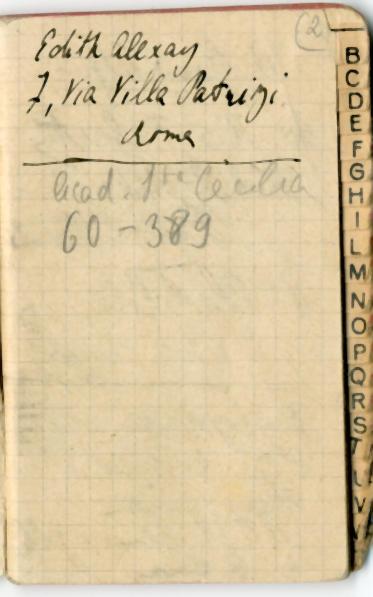 (2
Edith Alexay
7, Via Villa Patrizi
Roma
Acad. Sta Cecilia
60-389
B
C
D
E
F
G
H
I
L
M
N
O
P
Q
R
S
T
U
V